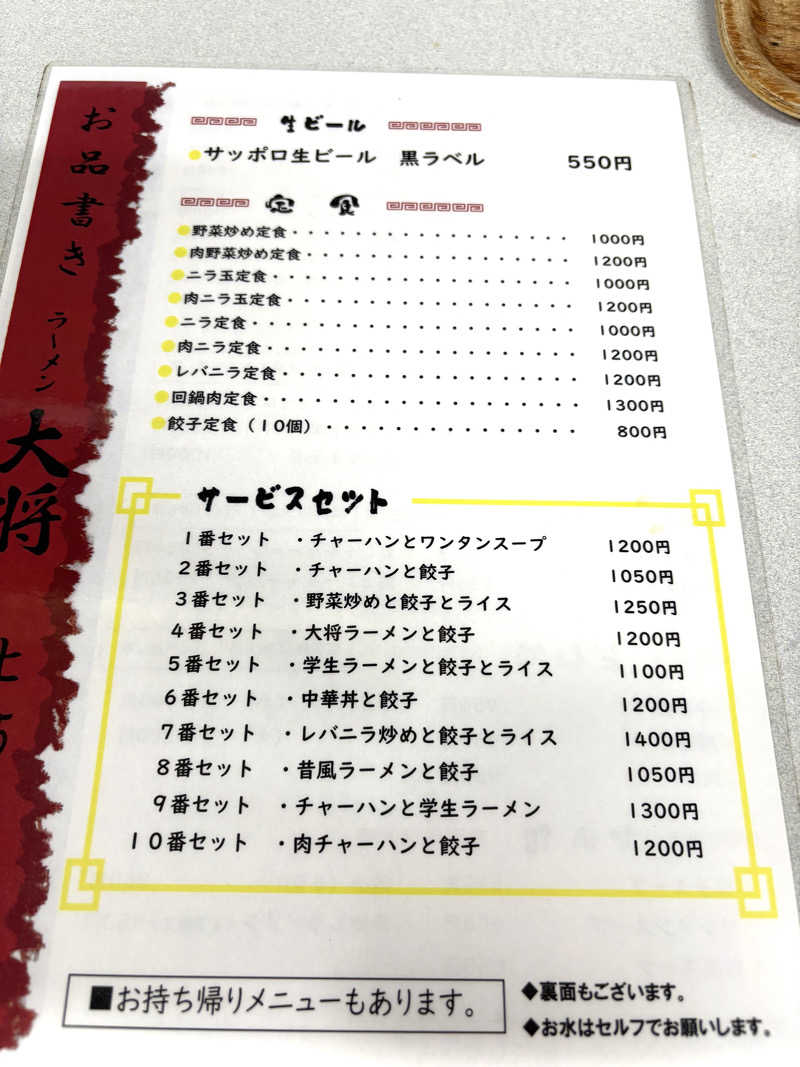 お品書き
ラーメン
大将
生ビール
サッポロ生ビール 黒ラベル 550円
定食
野菜炒め定食・・・・・・・・・・・・・・・・・ 1000円
肉野菜炒め定食・・・・・・・・・・・・・・・・ 1200円
ニラ玉定食・・・・・・・・・・・・・・・・・・ 1000円
肉ニラ玉定食・・・・・・・・・・・・・・・・・ 1200円
ニラ定食・・・・・・・・・・・・・・・・・・・ 1000円
肉ニラ定食・・・・・・・・・・・・・・・・・・ 1200円
レバニラ定食・・・・・・・・・・・・・・・・・ 1200円
回鍋肉定食・・・・・・・・・・・・・・・・・・ 1300円
餃子定食（10個）・・・・・・・・・・・・・・ 800円
サービスセット
1番セット ・チャーハンとワンタンスープ 1200円
2番セット ・チャーハンと餃子 1050円
3番セット ・野菜炒めと餃子とライス 1250円
4番セット ・大将ラーメンと餃子 1200円
5番セット ・学生ラーメンと餃子とライス 1100円
6番セット ・中華丼と餃子 1200円
7番セット ・レバニラ炒めと餃子とライス 1400円
8番セット ・昔風ラーメンと餃子 1050円
9番セット ・チャーハンと学生ラーメン 1300円
10番セット ・肉チャーハンと餃子 1200円
■お持ち帰りメニューもあります。
◆裏面もございます。
◆お水はセルフでお願いします。